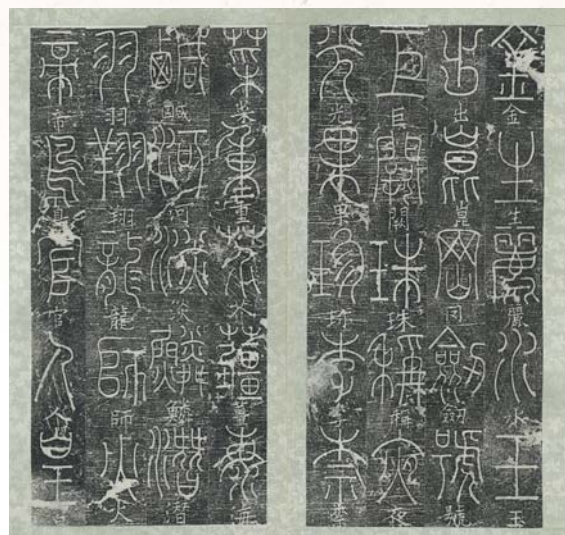 金生麗水玉
出崑岡劍號
巨闕珠稱夜
光果珍李柰
菜重芥薑海
鹹河淡鱗潛
羽翔龍師火
帝鳥官人皇